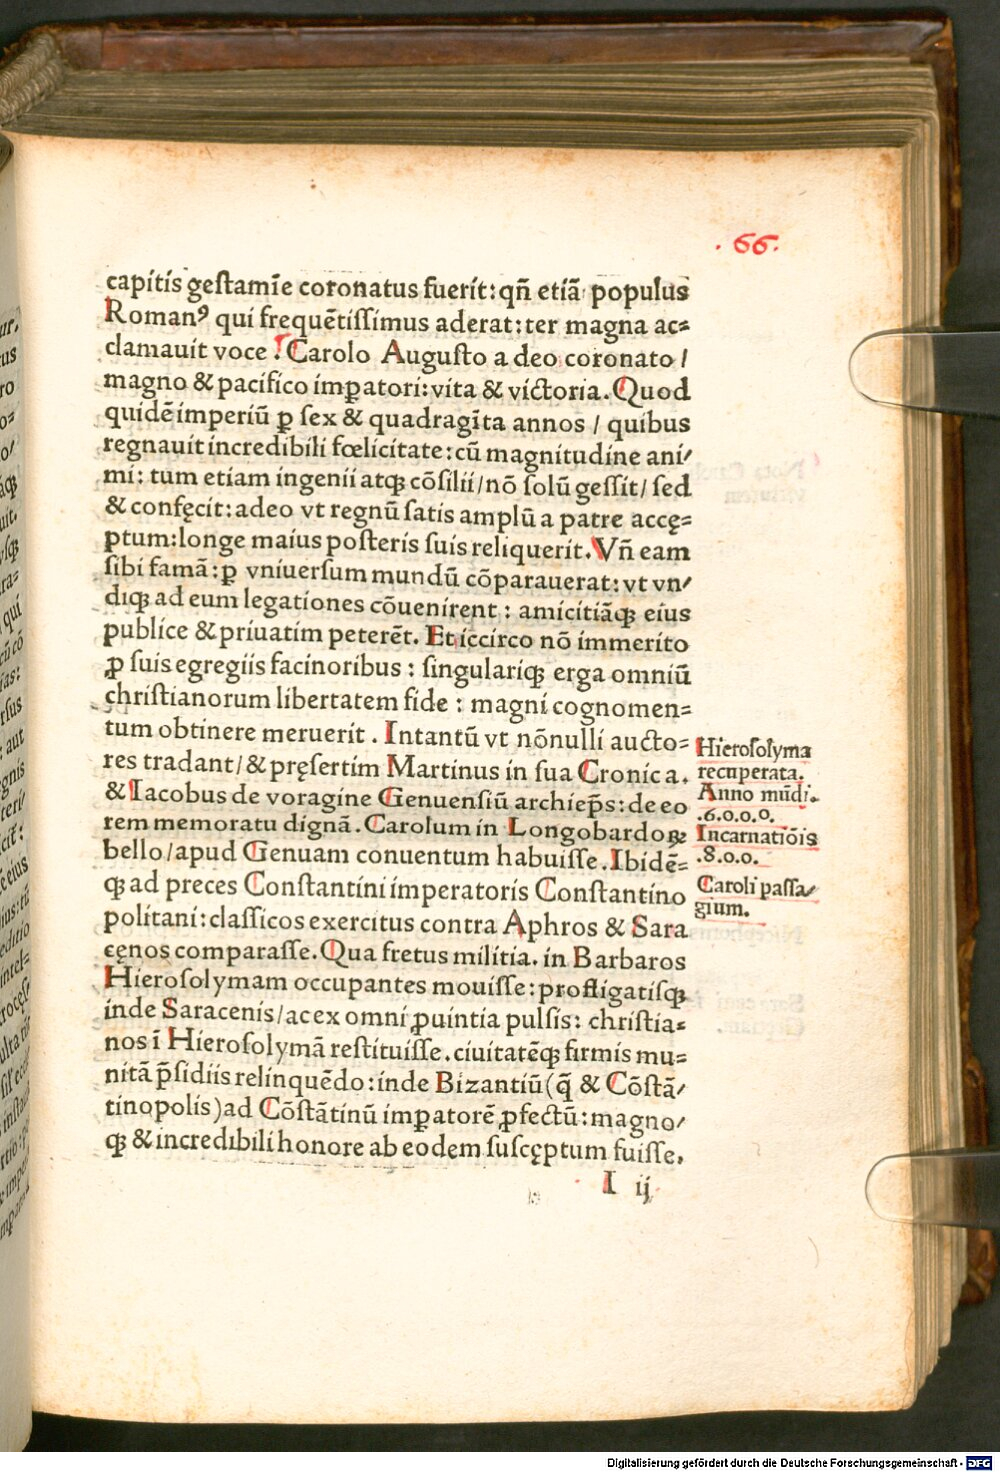 . 66 .
capitis geſtamīe coronatus fuerit: qñ etiā populus
Romanꝰ qui frequētiſſimus aderat: ter magna ac⸗
clamauit voce . Carolo Auguſto a deo coronato /
magno & pacifico imꝑatori: vita & victoria. Quod
quidē imperiū ꝑ ſex & quadragīta annos / quibus
regnauit incredibili fœlicitate: cū magnitudine ani/
mi: tum etiam ingenii atqꝫ cōſilii/ nō ſolū geſſit/ ſed
& confęcit: adeo vt regnū ſatis amplū a patre accę⸗
ptum: longe maius poſteris ſuis reliquerit. Vñ eam
ſibi famā: ꝑ vniuerſum mundū cōparauerat: vt vn/
diqꝫ ad eum legationes cōuenirent : amicitiāqꝫ eius
publice & priuatim peterēt. Et iccirco nō immerito
ꝓ ſuis egregiis facinoribus : ſingulariqꝫ erga omniū
chriſtianorum libertatem fide : magni cognomen⸗
tum obtinere meruerit . Intantū vt nōnulli aucto⸗
res tradant/ & pręſertim Martinus in ſua Cronica.
& Iacobus de voragine Genuenſiū archiep̄s: de eo
rem memoratu dignā. Carolum in Longobardoꝝ
bello/ apud Genuam conuentum habuiſſe. Ibidē⸗
qꝫ ad preces Conſtantini imperatoris Conſtantino
politani: claſſicos exercitus contra Aphros & Sara
cęnos comparaſſe. Qua fretus militia. in Barbaros
Hieroſolymam occupantes mouiſſe: profligatiſqꝫ
inde Saracenis/ ac ex omni ꝓuintia pulſis: chriſtia⸗
nos ī Hieroſolymā reſtituiſſe. ciuitatēqꝫ firmis mu⸗
nitā p̄ſidiis relinquēdo: inde Bizantiū (q̄ & Cōſtā/
tinopolis) ad Cōſtātinū imꝑatorē ꝓfectū: magno/
qꝫ & incredibili honore ab eodem ſuſcęptum fuiſſe.
I ij
Hieroſolyma
recuperata.
Anno mūdi.
.6.0.0.0.
Incarnatiōis
.8.0.0.
Caroli paſſa/
gium.
Digitalisierung gefördert durch die Deutsche Forschungsgemeinschaft - DFG